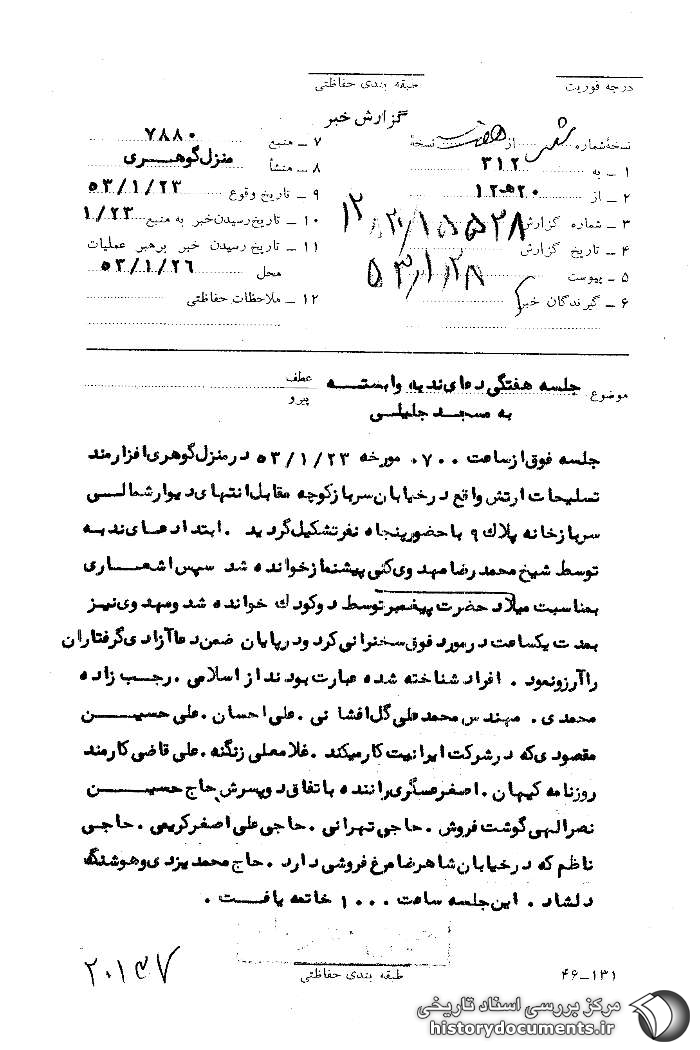 درجه فوریت
طبقه بندی حفاظتی
گزارش خبر
نسخهٔ شماره از نسخهٔ
۱ ـ به ۳۱۲
۲ ـ از ۲۰ ه‍ ۱۲
۳ ـ شماره گزارش
۴ ـ تاریخ گزارش ۵۳/۱/۲۸
۵ ـ پیوست
۶ ـ گیرندگان خبر
۷ ـ منبع ۷۸۸۰
۸ ـ منشأ منزل گوهری
۹ ـ تاریخ وقوع ۵۳/۱/۲۳
۱۰ ـ تاریخ رسیدن خبر به منبع ۱/۲۳
۱۱ ـ تاریخ رسیدن خبر برهبر عملیات
محل ۵۳/۱/۲۶
۱۲ ـ ملاحظات حفاظتی
موضوع جلسه هفتگی دعای ندبه وابسته
به مسجد جلیلی
عطف
پیرو
جلسه فوق از ساعت ۰۷۰۰ مورخه ۵۳/۱/۲۳ در منزل گوهری افزارمند
تسلیحات ارتش واقع در خیابان سرباز کوچه مقابل انتهای دیوار شمالی
سربازخانه پلاک ۹ با حضور پنجاه نفر تشکیل گردید . ابتدا دعای ندبه
توسط شیخ محمد رضا مهدوی کنی پیشنماز خوانده شد سپس اشعاری
بمناسبت میلاد حضرت پیغمبر توسط دو کودک خوانده شد ومهدوی نیز
بمدت یکساعت در مورد فوق سخنرانی کرد ودر پایان ضمن دعا آزادی گرفتاران
را آرزو نمود . افراد شناخته شده عبارت بودند از اسلامی . رجب زاده
محمدی . مهندس محمد علی گل افشانی . علی احسان . علی حسین
مقصودی که در شرکت ایرانیت کار میکند . غلامعلی زنگنه . علی قاضی کارمند
روزنامه کیهان . اصغر عسگری راننده باتفاق دو پسرش حاج حسین
نصرالهی گوشت فروش . حاجی تهرانی . حاجی علی اصغر کریمی . حاجی
ناظم که در خیابان شاهرضا مرغ فروشی دارد . حاج محمد یزدی وهوشنگ
دلشاد . این جلسه ساعت ۱۰۰۰ خاتمه یافت .
طبقه بندی حفاظتی
۴۶ـ۱۳۱
مرکز بررسی اسناد تاریخی
historydocuments.ir